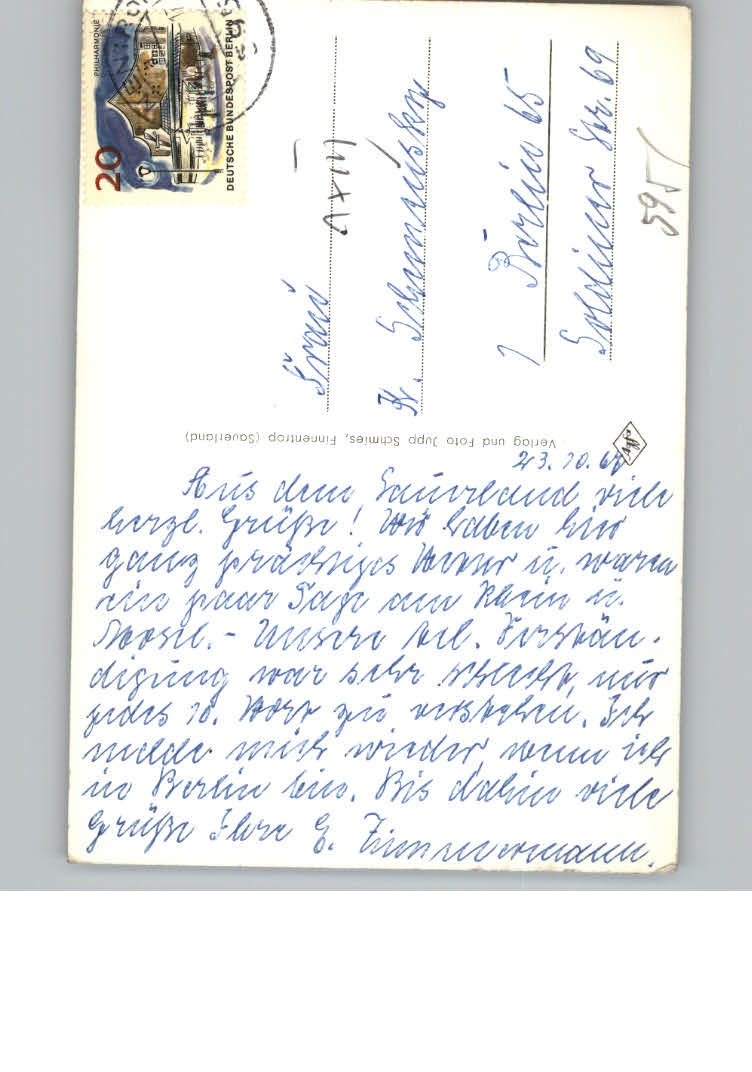 23. 10. 67
Aus dem Sauerland viele
herzl. Grüße! Wir haben hier
ganz prächtiges Wetter u. waren
ein paar Tage am Rhein u.
Mosel. - Unsere tel. Verstän-
digung war sehr schlecht, nur
jedes 10. Wort zu verstehen. Ich
melde mich wieder, wenn ich
in Berlin bin. Bis dahin viele
Grüße Ihre E. Zimmermann.
Verlag und Foto Jupp Schmies, Finnentrop (Sauerland)
Frau
K.
1 Berlin 65
Soldiner Str. 69
595
20
PHILHARMONIE
DEUTSCHE BUNDESPOST BERLIN